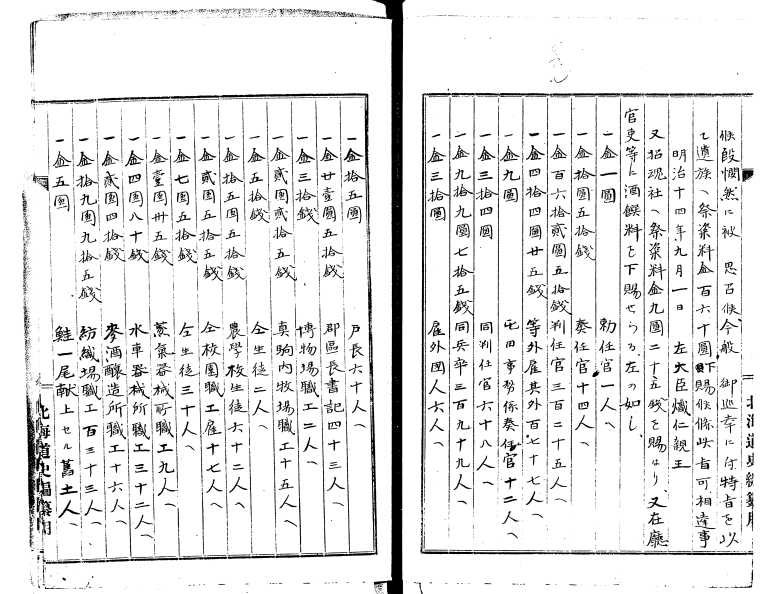 候段憫然ニ被 思召候今般 御巡幸ニ付特旨ヲ以
テ遺族ヘ祭粢料金百六十圓下賜候條此旨可相達事
明治十四年九月一日 左大臣熾仁親王
又招魂社ヘ祭粢料金九圓二十五錢を賜はり、又在廳
官吏等に酒饌料を下賜せらる左の如し、
一金一圓 勅任官一人、
一金拾圓五拾錢 奏任官十四人、
一金百六拾貳圓五拾錢 判任官三百二十五人、
一金四拾四圓廿五錢 等外雇其外百七十七人、
一金九圓 屯田事務係奏任官十二人、
一金三拾四圓 同判任官六十八人、
一金九拾九圓七拾五錢 同兵卒三百九十九人、
一金三拾圓 雇外國人六人、
北海道史編纂用
一金拾五圓 戸長六十人、
一金廿壹圓五拾錢 郡區長書記四十三人、
一金三拾錢 博物場職工二人、
一金貳圓貳拾五錢 真駒内牧場職工十五人、
一金五拾錢 仝生徒二人、
一金拾五圓五拾錢 農學校生徒六十二人、
一金貳圓五拾五錢 仝校園職工雇十七人、
一金七圓五拾錢 仝生徒三十人、
一金壹圓卅五錢 蒸氣器械所職工九人、
一金四圓八十錢 水車器械所職工三十二人、
一金貳圓四拾錢 麥酒釀造所職工十六人、
一金拾九圓九拾五錢 紡織場職工百三十三人、
一金五圓 鮭一尾献上セル舊土人、
北海道史編纂用